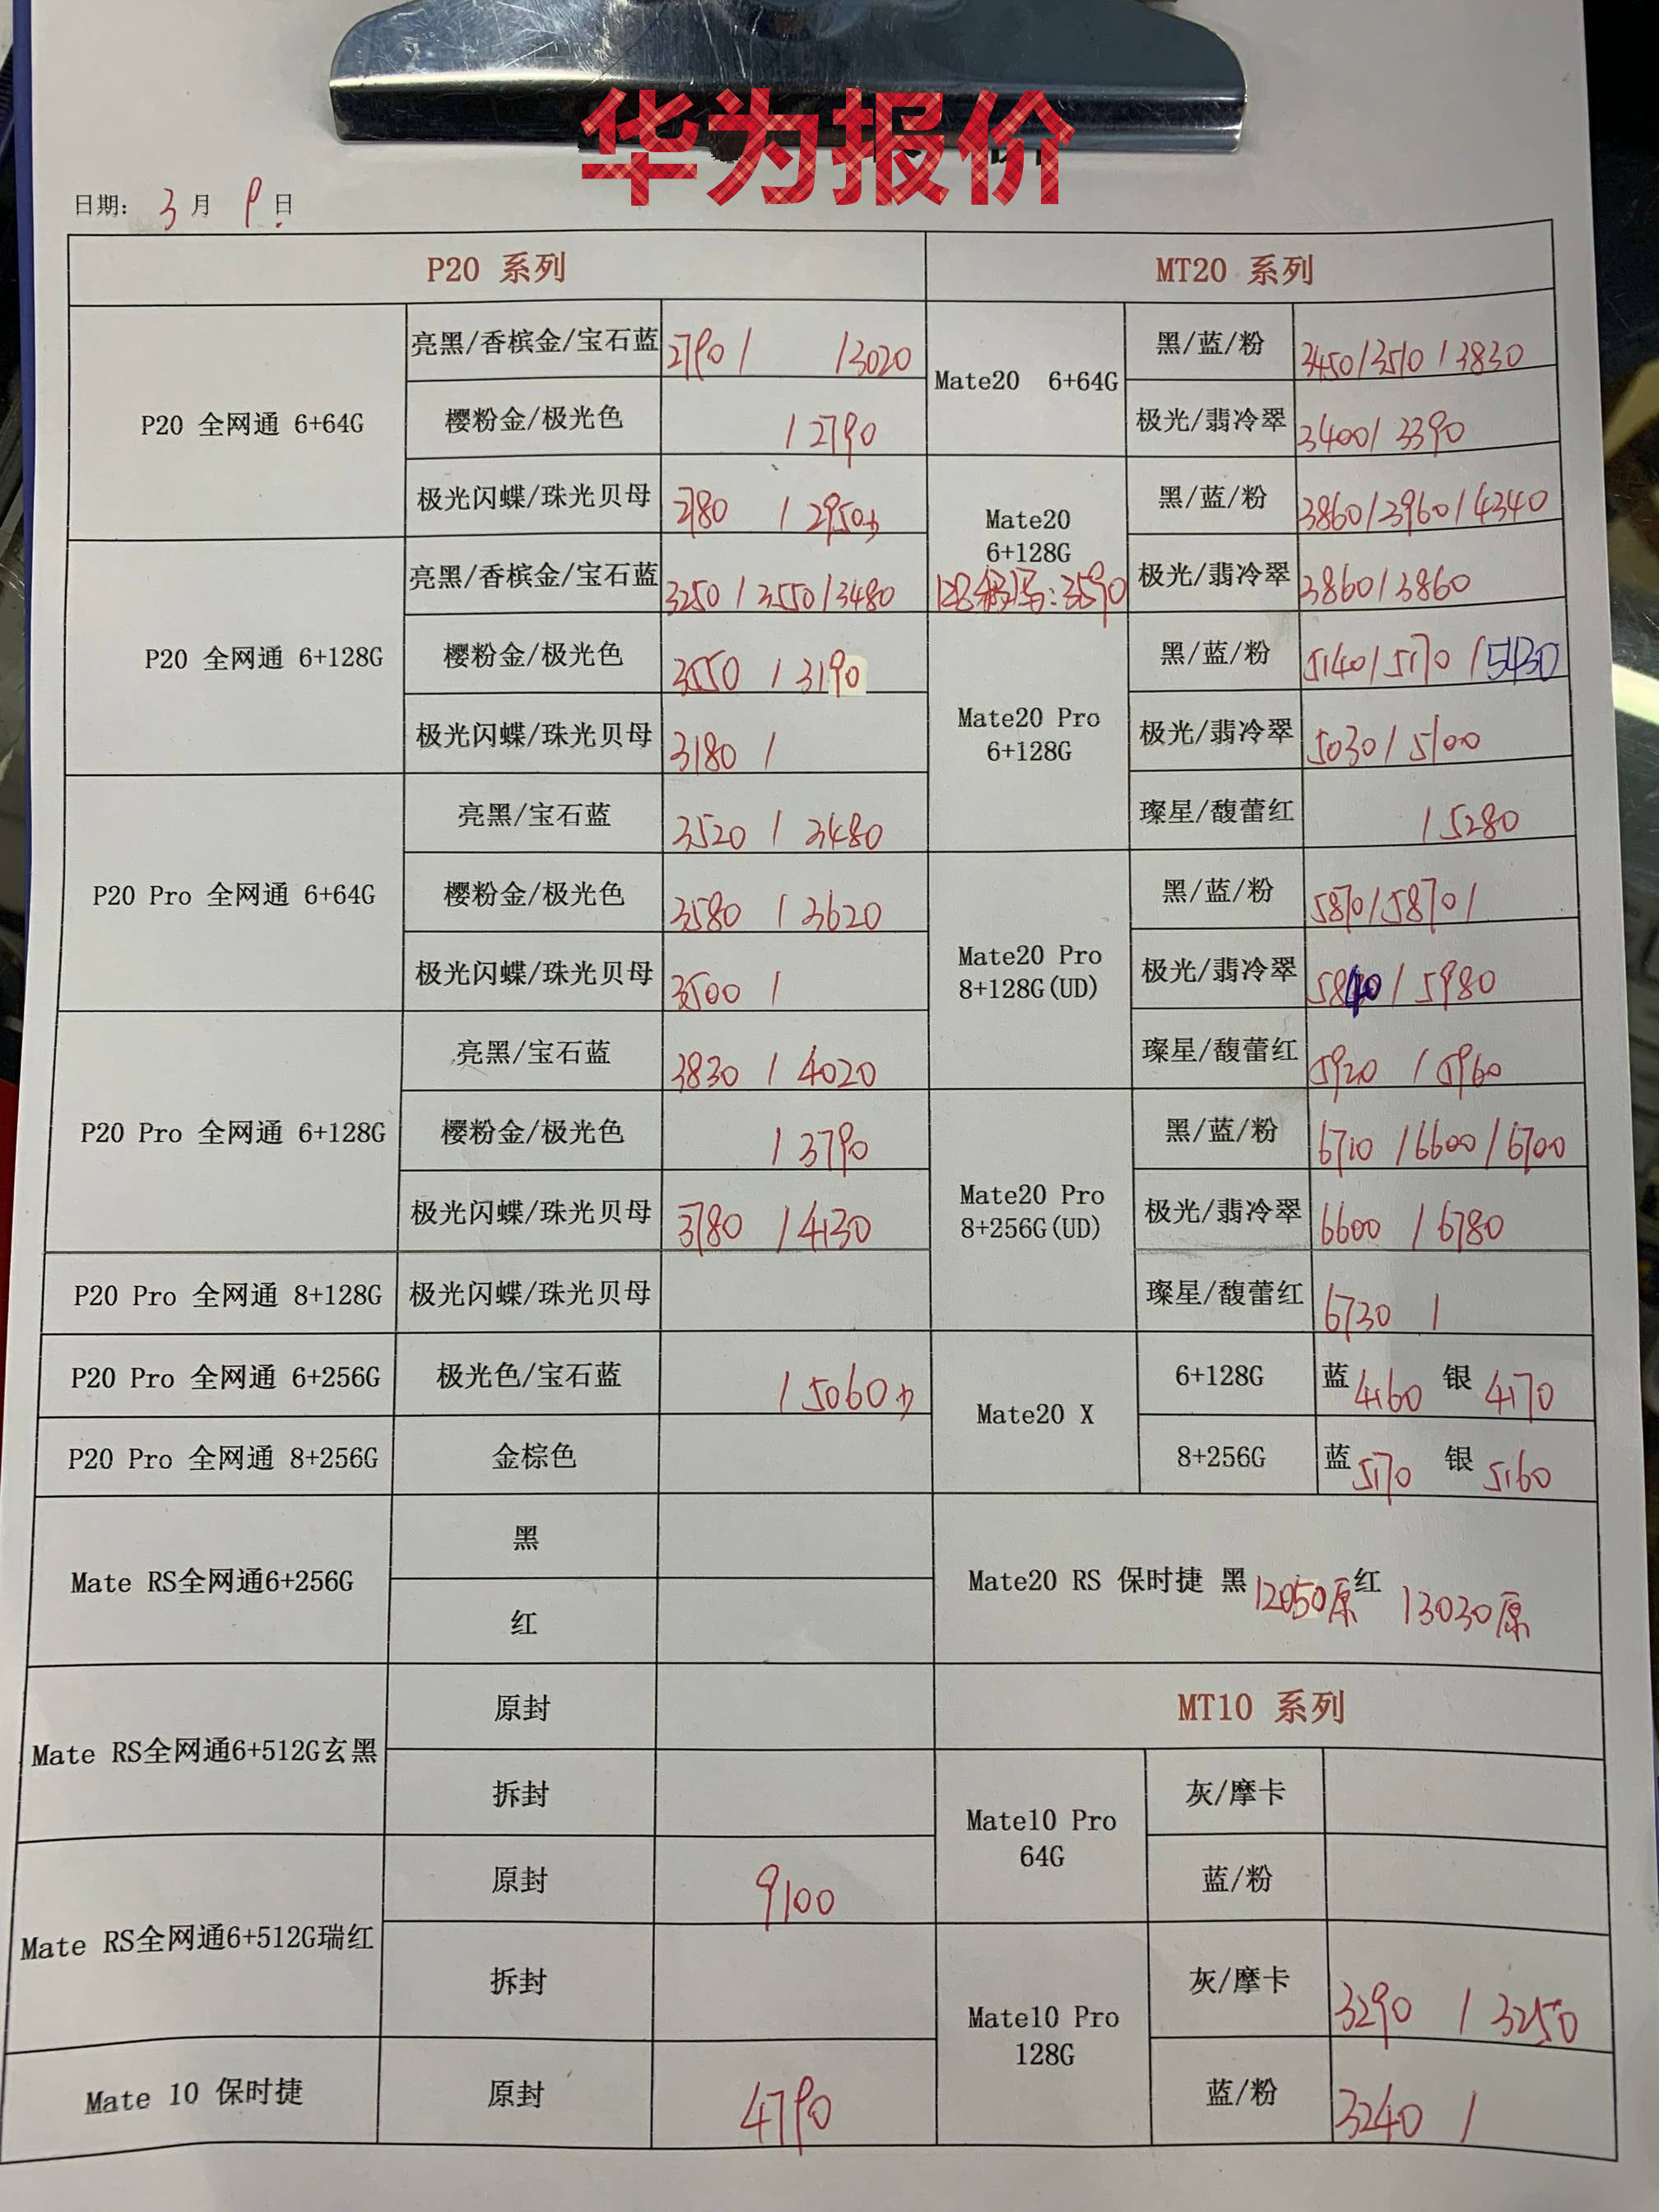 华为报价
日期: 3 月 9 日
P20 系列
P20 全网通 6+64G
亮黑/香槟金/宝石蓝 2790 / /3020
樱粉金/极光色 / 2790
极光闪蝶/珠光贝母 2780 / 2950
P20 全网通 6+128G
亮黑/香槟金/宝石蓝 3250 / 3550 / 3480
樱粉金/极光色 3550 / 3190
极光闪蝶/珠光贝母 3180 /
P20 Pro 全网通 6+64G
亮黑/宝石蓝 3520 / 3480
樱粉金/极光色 3580 / 3620
极光闪蝶/珠光贝母 3500 /
P20 Pro 全网通 6+128G
亮黑/宝石蓝 3830 / 4020
樱粉金/极光色 / 3790
极光闪蝶/珠光贝母 3780 / 4130
P20 Pro 全网通 8+128G 极光闪蝶/珠光贝母
P20 Pro 全网通 6+256G 极光色/宝石蓝 / 5060
P20 Pro 全网通 8+256G 金棕色
Mate RS全网通6+256G
黑
红
Mate RS全网通6+512G玄黑
原封
拆封
Mate RS全网通6+512G瑞红
原封 9100
拆封
Mate 10 保时捷 原封 4790
MT20 系列
Mate20 6+64G
黑/蓝/粉 3450/3510/3830
极光/翡冷翠 3400/3390
Mate20
6+128G
128 :3590
黑/蓝/粉 3860/3960/4340
极光/翡冷翠 3860/3860
Mate20 Pro
6+128G
黑/蓝/粉 5140/5170/5430
极光/翡冷翠 5030/5100
璨星/馥蕾红 / 5280
Mate20 Pro
8+128G(UD)
黑/蓝/粉 5870/5870/
极光/翡冷翠 5840/5980
璨星/馥蕾红 5920 / 5960
Mate20 Pro
8+256G(UD)
黑/蓝/粉 6710 /6600/6700
极光/翡冷翠 6600 / 6780
璨星/馥蕾红 6730 /
Mate20 X
6+128G 蓝 4160 银 4170
8+256G 蓝 5170 银 5160
Mate20 RS 保时捷 黑 12050原 红 13030原
MT10 系列
Mate10 Pro
64G
灰/摩卡
蓝/粉
Mate10 Pro
128G
灰/摩卡 3290 / 3250
蓝/粉 3240 /